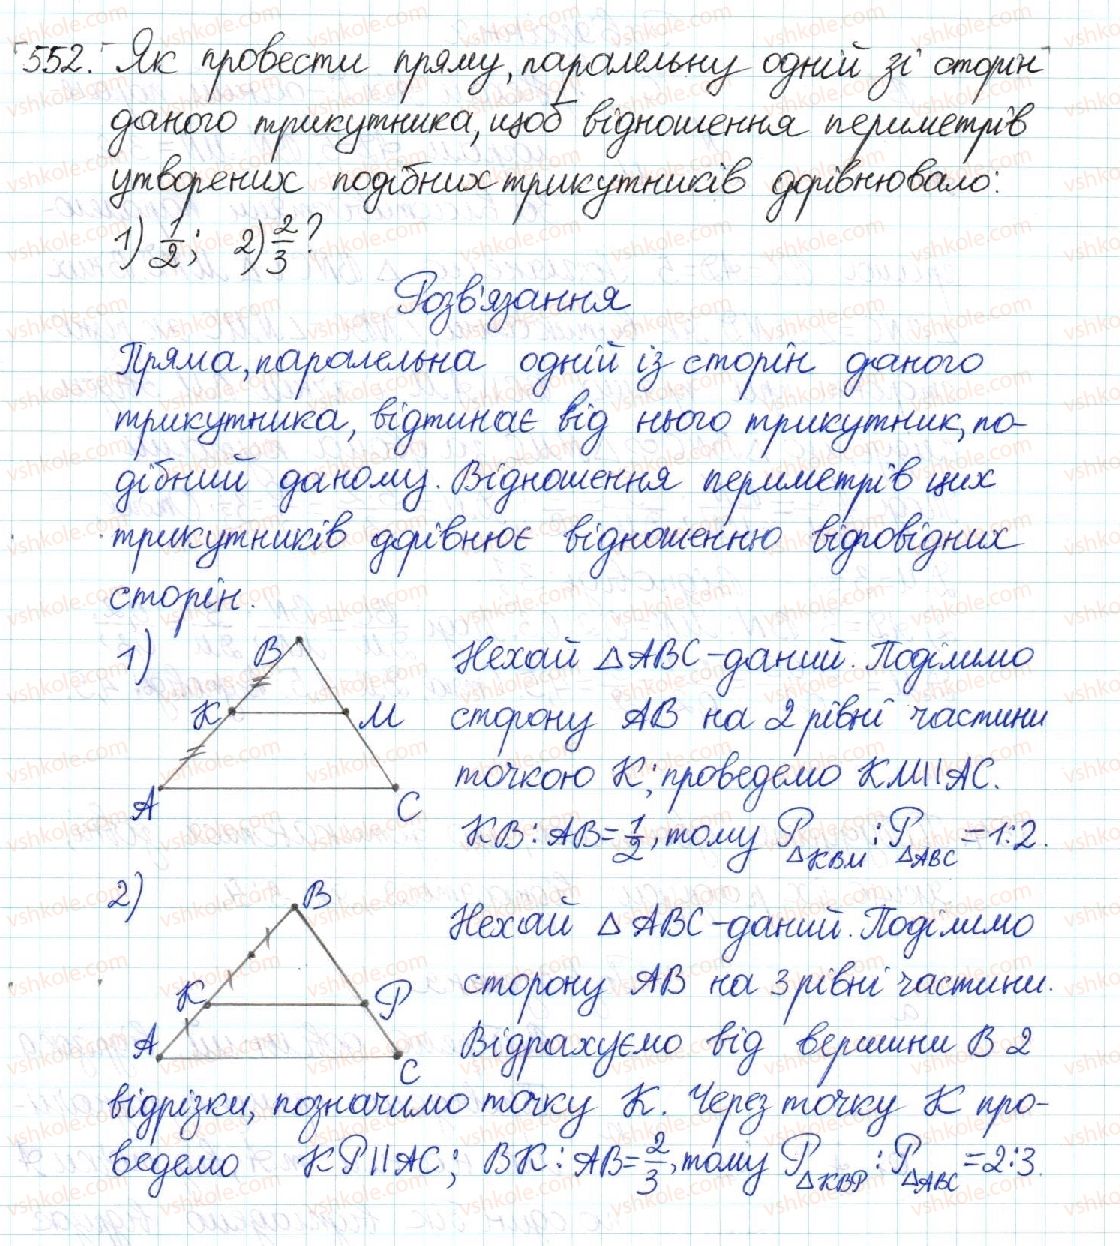 552. Як провести пряму, паралельну одній зі сторін
даного трикутника, щоб відношення периметрів
утворених подібних трикутників дорівнювало:
1) 1/2; 2) 2/3?
Розв'язання
Пряма, паралельна одній із сторін даного
трикутника, відтинає від нього трикутник, по-
дібний даному. Відношення периметрів цих
трикутників дорівнює відношенню відповідних
сторін.
1) B K M A C
Нехай △ABC - даний. Поділимо
сторону AB на 2 рівні частини
точкою K; проведемо KM||AC.
KB : AB = 1/2, тому P△KBM : P△ABC = 1:2.
2) B K P A C
Нехай △ABC - даний. Поділимо
сторону AB на 3 рівні частини.
Відрахуємо від вершини B 2
відрізки, позначимо точку K. Через точку K про-
ведемо KP||AC; BK : AB = 2/3, тому P△KBP : P△ABC = 2:3.
vshkole.com